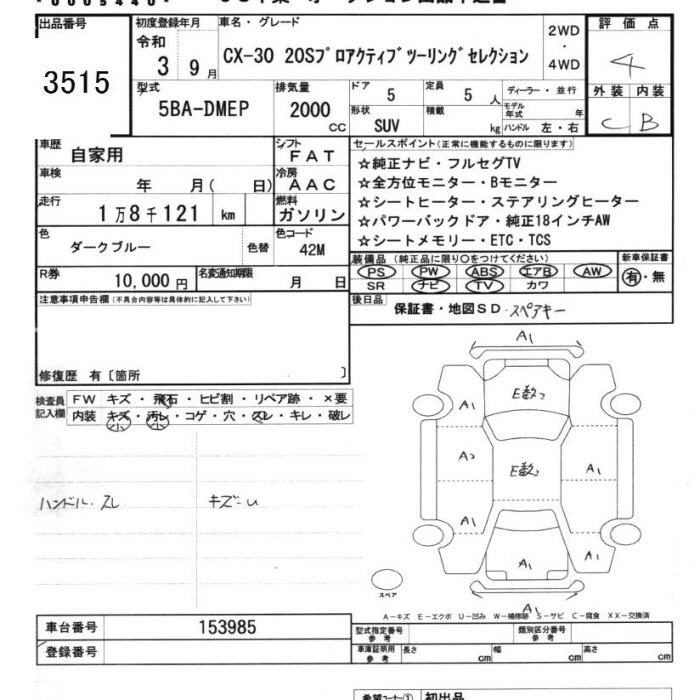 出品番号
3515
初度登録年月
令和
3 9月
車名・グレード
CX-30 20Sプロアクティブツーリングセレクション
2WD
・
4WD
評価点
4
外装 内装
C B
型式
5BA-DMEP
排気量
2000
CC
ドア
5
定員
5人
ディーラー・並行
形状
SUV
積載
kg
モデル年式
年
ハンドル 左・右
車歴
自家用
シフト
FAT
車検
年 月( 日)
冷房
AAC
走行
1万8千121 km
燃料
ガソリン
色
ダークブルー
色替
色コード
42M
R券
10,000円
名変通知期限
月 日
セールスポイント(正常に機能するものに限ります)
☆純正ナビ・フルセグTV
☆全方位モニター・Bモニター
☆シートヒーター・ステアリングヒーター
☆パワーバックドア・純正18インチAW
☆シートメモリー・ETC・TCS
装備品(純正品に限り○をつけてください)
PS PW ABS エアB AW
SR ナビ TV カワ
新車保証書
有・無
後日品
保証書・地図SD・スペアキー
注意事項申告欄(不具合内容等は具体的に記入して下さい)
修復歴 有〔箇所 〕
検査員
記入欄
FW キズ・飛石・ヒビ割・リペア跡・×要
内装 キズ・汚レ・コゲ・穴・スレ・キレ・破レ
小 小
ハンドル.スレ キズ-U
A1
E数コ
A1
A2
E数コ
A1
A1
A1
A1
A1
スペア
A-キズ E-エクボ U-凹み W-補修跡 S-サビ C-腐食 XX-交換済
車台番号
153985
登録番号
型式指定番号
参考
類別区分番号
参考
車庫証明用
参考
長さ cm
幅 cm
高さ cm
希望コーナー① 初出品